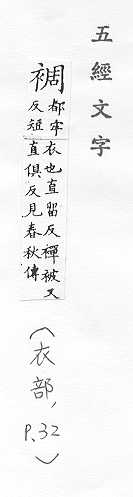 五經文字
裯
都牢
反短
衣也直留反襌被又
直俱反見春秋傳
(衣部,
P.32)